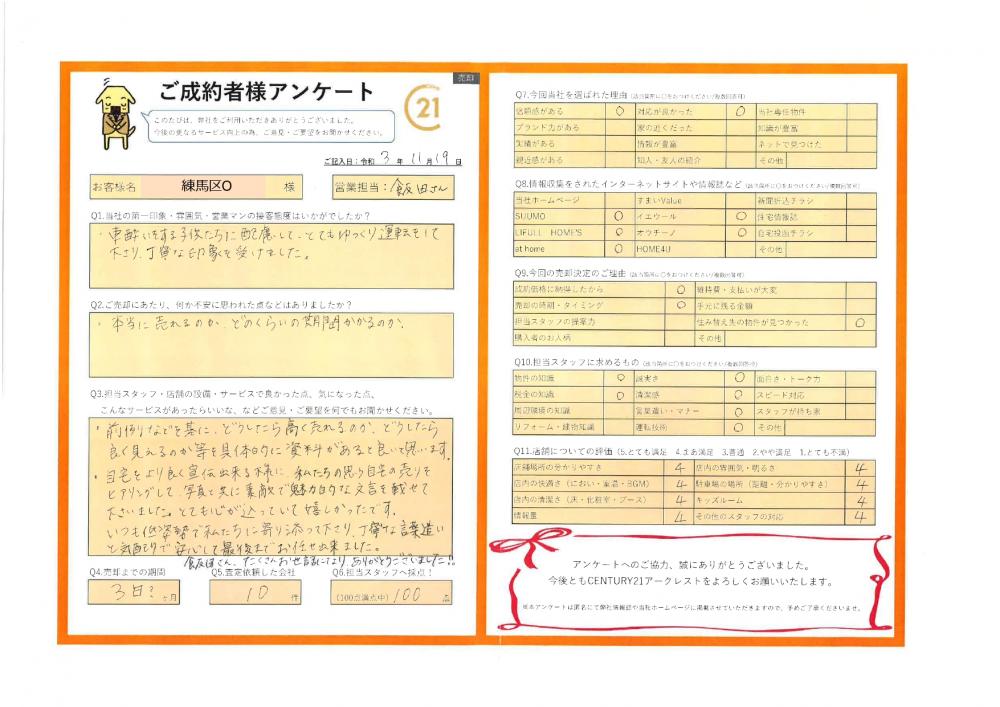 売却
ご成約者様アンケート
21
このたびは、弊社をご利用いただきありがとうございました。
今後の更なるサービス向上の為、ご意見・ご要望をお聞かせください。
ご記入日：令和 3 年 11 月 19 日
お客様名 練馬区O 様
営業担当：飯田さん
Q1.当社の第一印象・雰囲気・営業マンの接客態度はいかがでしたか？
・車酔いをする子供たちに配慮して、とてもゆっくり運転をして
下さり、丁寧な印象を受けました。
Q2.ご売却にあたり、何か不安に思われた点などはありましたか？
・本当に売れるのか、どのくらいの期間かかるのか。
Q3.担当スタッフ・店舗の設備・サービスで良かった点、気になった点、
こんなサービスがあったらいいな、などご意見・ご要望を何でもお聞かせください。
・前例などを基に、どうしたら高く売れるのか、どうしたら
良く見えるのか等を具体的に資料があると良いと思います。
・自宅をより良く宣伝出来る様に、私たちの思う自宅の売りを
ヒアリングして、写真と共に素敵で魅力的な文言を載せて
下さいました。とても心が込っていて嬉しかったです。
いつも低姿勢で私たちに寄り添って下さり、丁寧な言葉遣い
と気配りで安心して最後までお任せ出来ました。
飯田さん、たくさんお世話になり、ありがとうございました!!
Q4.売却までの期間
3日? ヶ月
Q5.査定依頼した会社
10 件
Q6.担当スタッフへ採点！
(100点満点中) 100 点
Q7.今回当社を選ばれた理由 (該当箇所に○をおつけください/複数回答可)
信頼感がある ○ 対応が良かった ○ 当社専任物件
ブランド力がある 家の近くだった 知識が豊富
実績がある 情報が豊富 ネットで見つけた
親近感がある 知人・友人の紹介 その他
Q8.情報収集をされたインターネットサイトや情報誌など (該当箇所に○をおつけください/複数回答可)
当社ホームページ すまいValue 新聞折込チラシ
SUUMO ○ イエウール ○ 住宅情報誌
LIFULL HOME'S ○ オウチーノ ○ 自宅投函チラシ
at home ○ HOME4U その他
Q9.今回の売却決定のご理由 (該当箇所に○をおつけください/複数回答可)
成約価格に納得したから ○ 維持費・支払いが大変
売却の時期・タイミング ○ 手元に残る金額
担当スタッフの提案力 住み替え先の物件が見つかった ○
購入者のお人柄 その他
Q10.担当スタッフに求めるもの (該当箇所に○をおつけください/複数回答可)
物件の知識 ○ 誠実さ ○ 面白さ・トーク力
税金の知識 ○ 清潔感 ○ スピード対応
周辺環境の知識 言葉遣い・マナー ○ スタッフが持ち家
リフォーム・建物知識 運転技術 ○ その他
Q11.店舗についての評価 (5.とても満足 4.まあ満足 3.普通 2.やや満足 1.とても不満)
店舗場所の分かりやすさ 4 店内の雰囲気・明るさ 4
店内の快適さ（におい・室温・BGM） 4 駐車場の場所（距離・分かりやすさ） 4
店内の清潔さ（床・化粧室・ブース） 4 キッズルーム 4
情報量 4 その他のスタッフの対応 4
アンケートへのご協力、誠にありがとうございました。
今後ともCENTURY21アークレストをよろしくお願いいたします。
※本アンケートは匿名にて弊社情報誌や当社ホームページに掲載させていただきますので、予めご了承くださいませ。